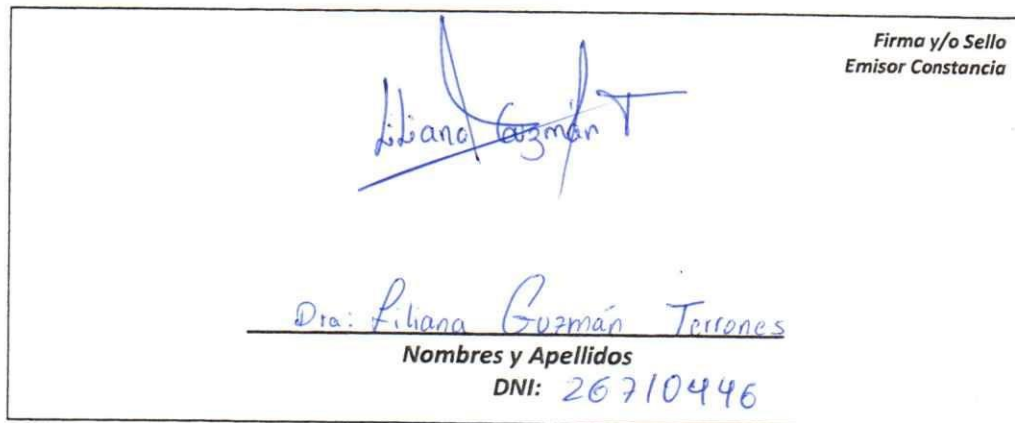 Firma y/o Sello
Emisor Constancia
Liliana Guzmán T
Dra: Liliana Guzmán Terrones
Nombres y Apellidos
DNI: 26710446